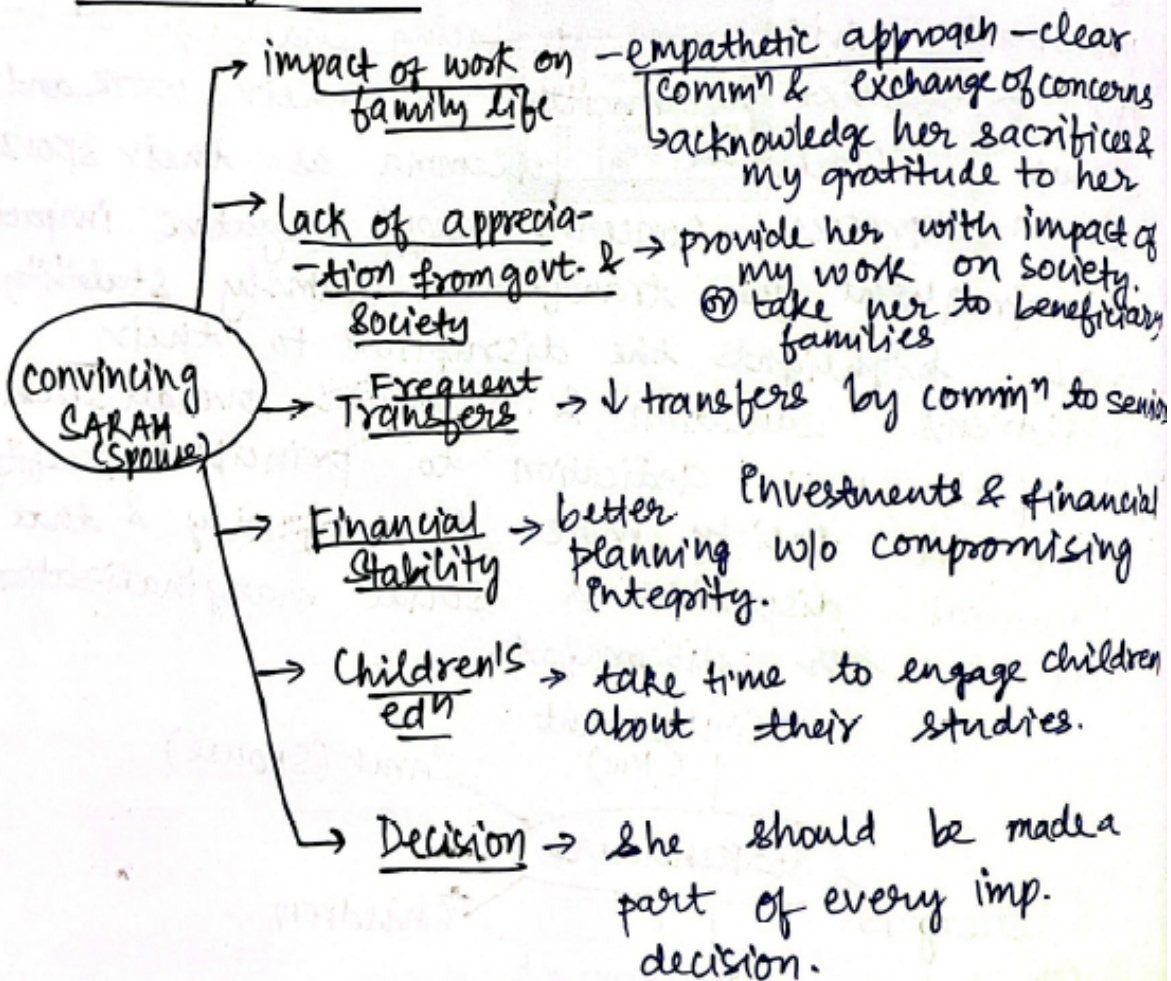 impact of work on – empathetic approach – clear
family life
commⁿ & exchange of concerns
↳ acknowledge her sacrifices &
my gratitude to her
lack of apprecia-
-tion from govt. &
society
→ provide her with impact of
my work on society.
or take her to beneficiary
families
convincing
SARAH
(spouse)
Frequent
Transfers → ↓ transfers by commⁿ to senior
Financial
Stability
→ better investments & financial
planning w/o compromising
integrity.
Children's
edⁿ
→ take time to engage children
about their studies.
Decision → she should be made a
part of every imp.
decision.